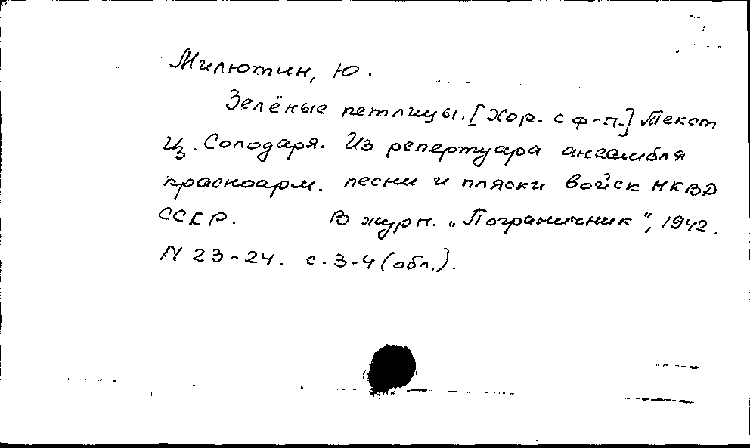 Милютин, Ю.
Зелёные петлицы. [Хор. с ф-п.] Текст
Ц. Солодаря. Из репертуара ансамбля
красноарм. песни и пляски войск НКВД
СССР. В журн. „Пограничник", 1942.
N 23-24. с. 3-4 (обл.).